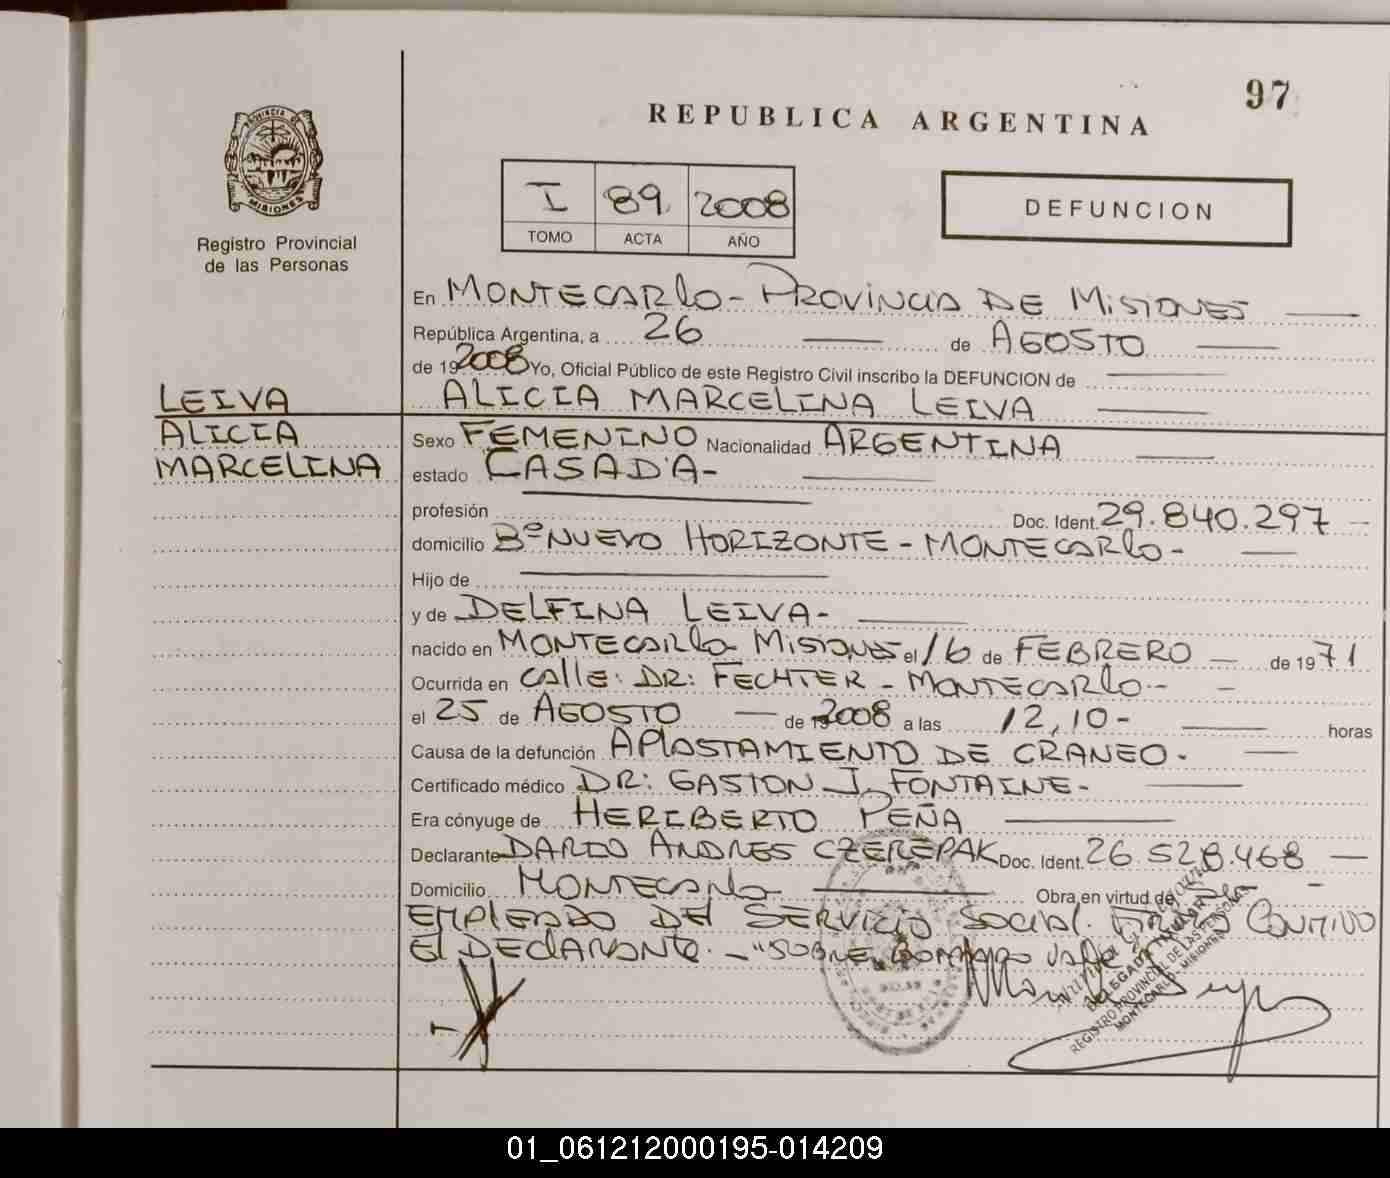 97
REPUBLICA ARGENTINA
PROVINCIA DE
MISIONES
Registro Provincial
de las Personas
I 89 2008
TOMO ACTA AÑO
DEFUNCION
En MONTECARLO - PROVINCIA DE MISIONES
República Argentina, a 26 de AGOSTO
de 19 2008 Yo, Oficial Público de este Registro Civil inscribo la DEFUNCION de
LEIVA
ALICIA
MARCELINA
ALICIA MARCELINA LEIVA
Sexo FEMENINO Nacionalidad ARGENTINA
estado CASADA-
profesión Doc. Ident. 29.840.297 -
domicilio Bº NUEVO HORIZONTE - MONTECARLO -
Hijo de
y de DELFINA LEIVA-
nacido en MONTECARLO MISIONES el 16 de FEBRERO - de 19 71
Ocurrida en CALLE: DR: FECHTER - MONTECARLO - -
el 25 de AGOSTO - de 2008 a las 12,10- horas
Causa de la defunción APLASTAMIENTO DE CRANEO.
Certificado médico DR: GASTON J. FONTAINE-
Era cónyuge de HERIBERTO PEÑA
Declarante DARIO ANDRES CZEREPAK Doc. Ident. 26.528.468 -
Domicilio MONTECARLO Obra en virtud de
EMPLEADO DEL SERVICIO SOCIAL. CONMIGO
El DECLARANTE. - "SOBRE BORRADO Vale
REGISTRO PROVINCIAL DE LAS PERSONAS
MONTECARLO - MISIONES
01_061212000195-014209